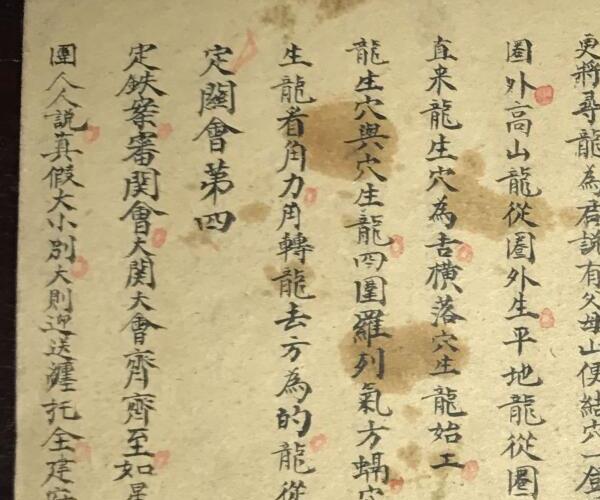 更將尋龍為君說有父母山便結穴一登
圈外高山龍從圈外生平地龍從圈
直来龍生穴為吉橫落穴生龍始工
龍生穴與穴生龍四圍羅列氣方蝸穴
生龍看角力角轉龍去方為的龍從
定關會第四
定鉄案審関會大関大會齊齊至如星
團人人説真假大小別大則迎送纏托全建